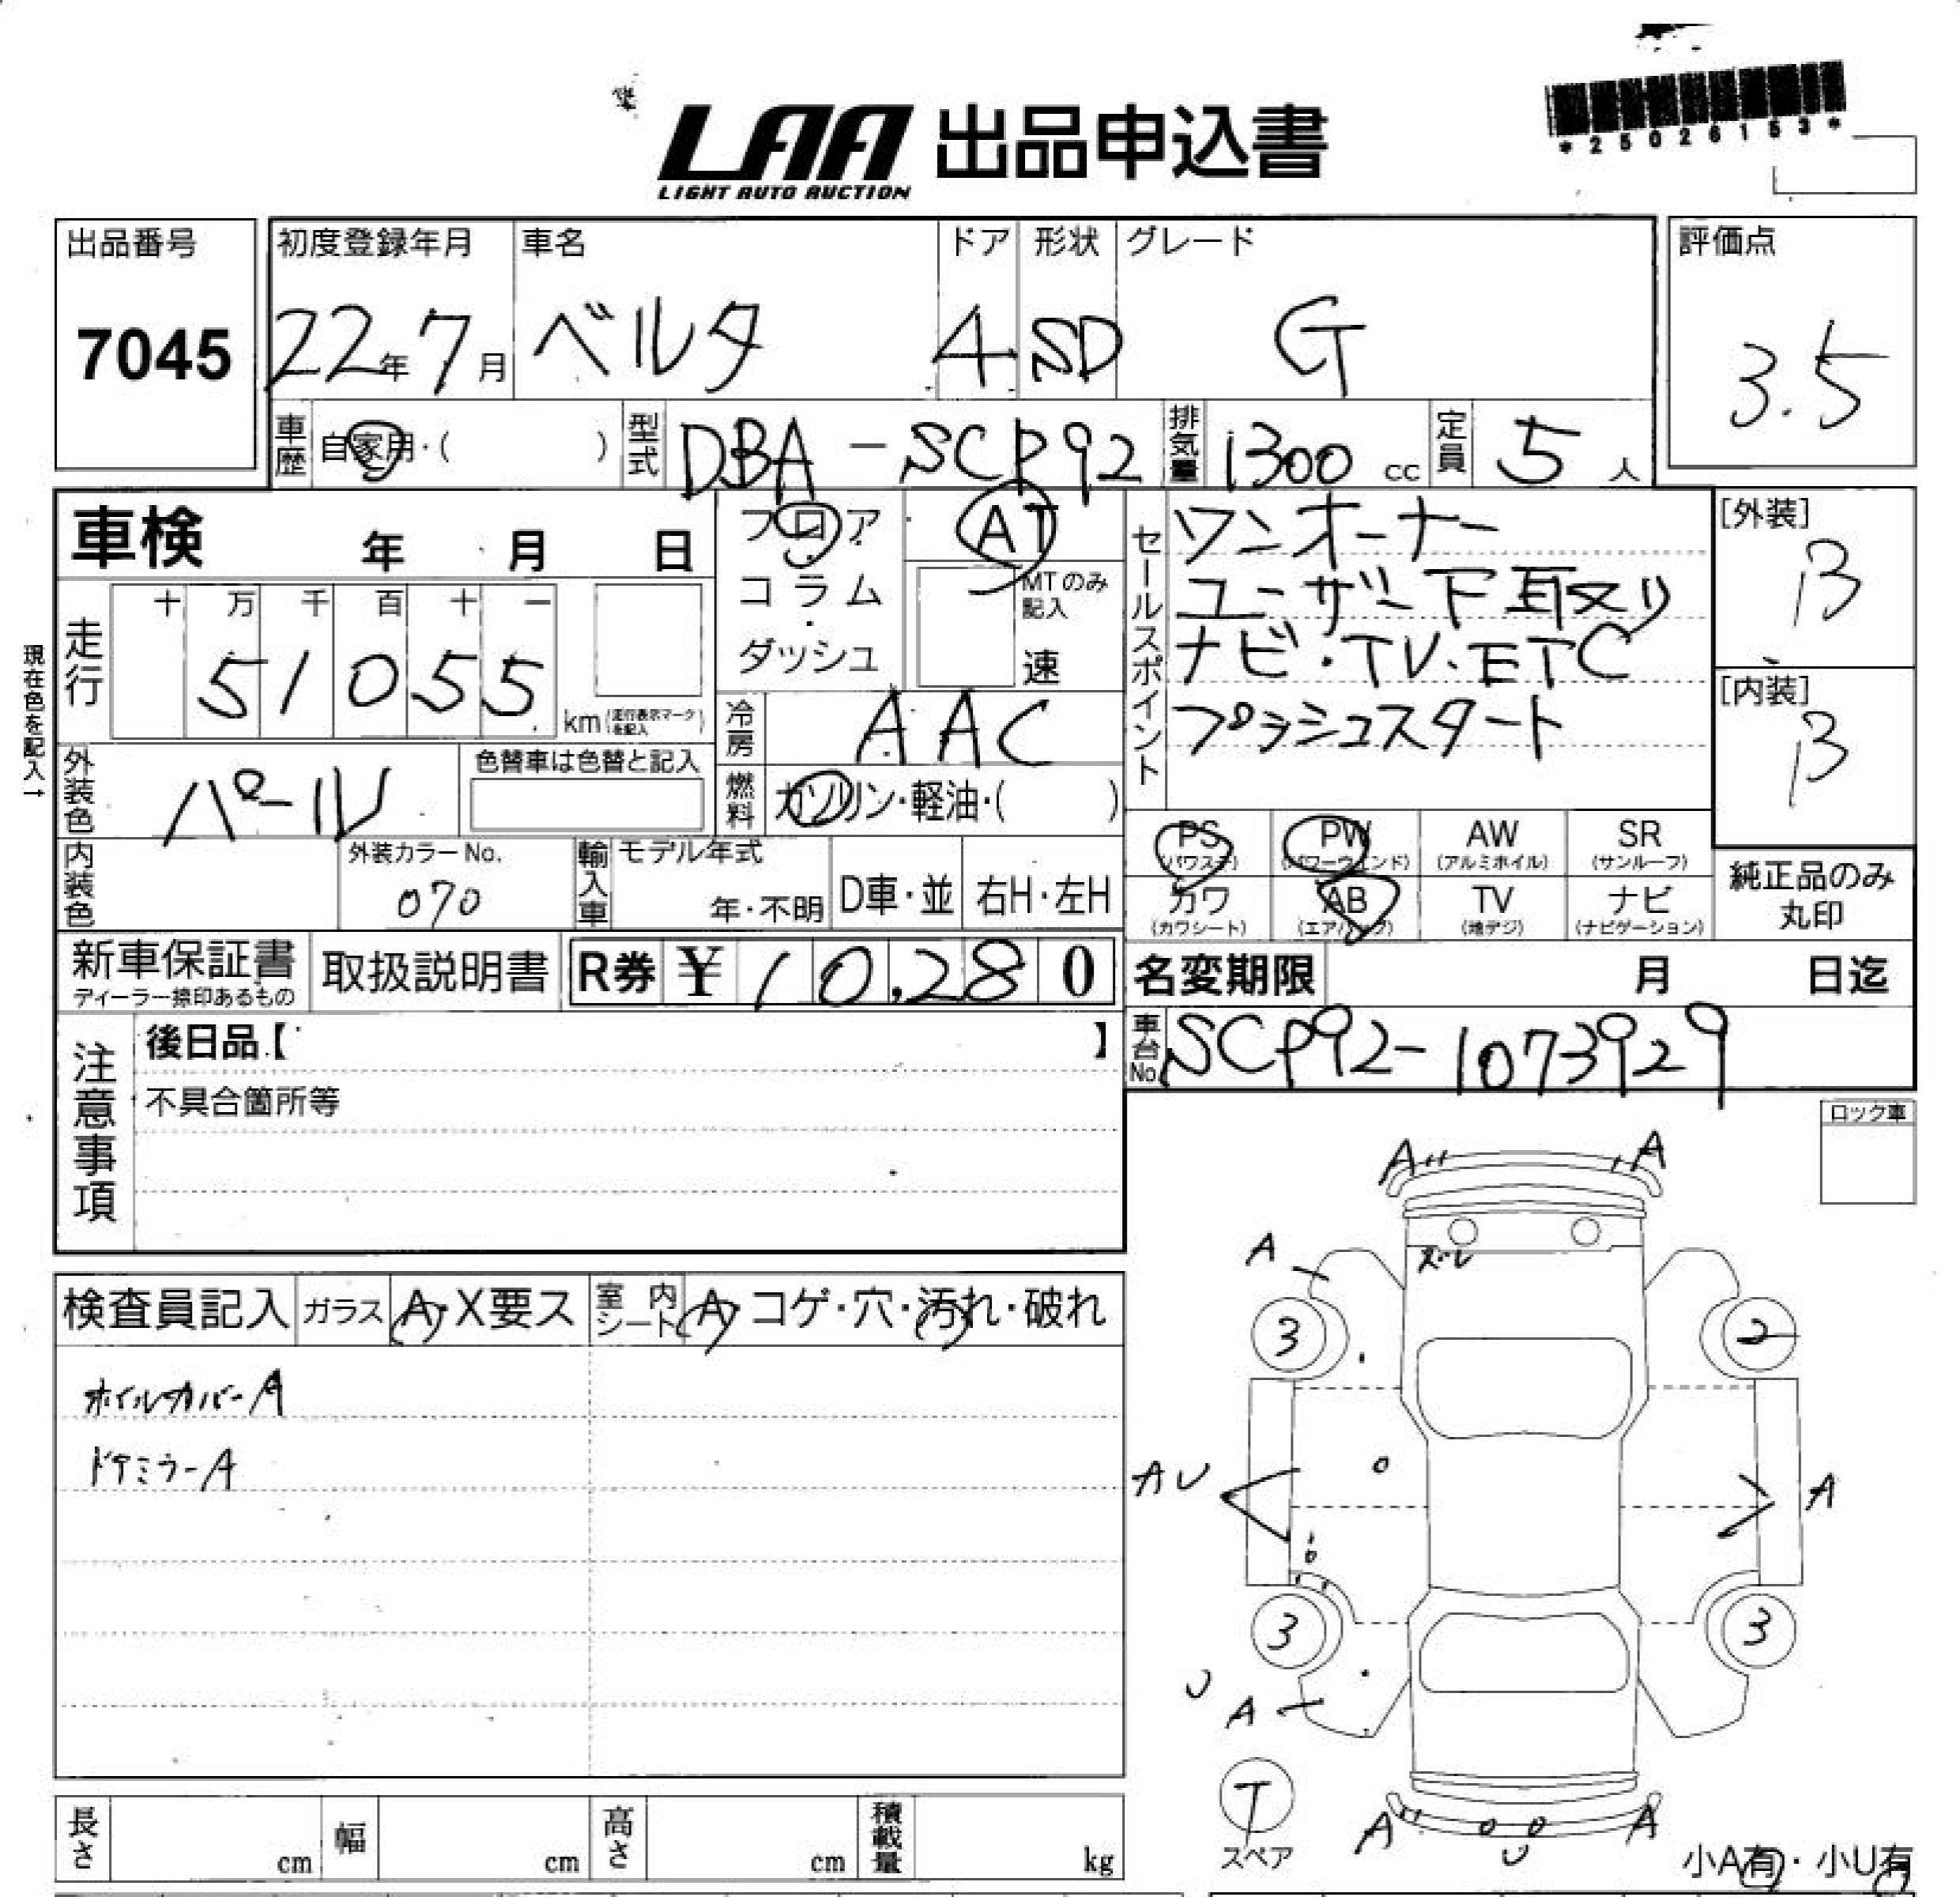 LAA 出品申込書
LIGHT AUTO AUCTION
*25026153*
出品番号 初度登録年月 車名 ドア 形状 グレード 評価点
7045 22年7月 ベルタ 4 SD G 3.5
車歴 自家用・( ) 型式 DBA-SCP92 排気量 1300 cc 定員 5 人
車検 年 月 日
フロア・コラム・ダッシュ
AT
MTのみ記入
速
セールスポイント
ワンオーナー
ユーザー下取り
ナビ・TV・ETC
プッシュスタート
[外装]
B
[内装]
B
現在色を記入→
走行 十 万 千 百 十 一
51055 km (走行表示マークを記入)
冷房 AAC
外装色 パール 色替車は色替と記入
燃料 ガソリン・軽油・( )
PS (パワステ) PW (パワーウィンド) AW (アルミホイル) SR (サンルーフ)
カワ (カワシート) AB (エアバッグ) TV (地デジ) ナビ (ナビゲーション)
純正品のみ丸印
内装色 外装カラーNo. 070 輸入車 モデル年式 年・不明 D車・並 右H・左H
新車保証書 ディーラー捺印あるもの 取扱説明書 R券 ¥ 10,280
名変期限 月 日迄
車台No. SCP92-1073929
注意事項
後日品【 】
不具合箇所等
ロック車
検査員記入 ガラス A・X要ス 室内シート A・コゲ・穴・汚れ・破れ
ホイルカバーA
ドアミラーA
A A
A ズレ
3 2
AU A
3 3
U
A
T
スペア
A U A
小A有・小U有
長さ cm 幅 cm 高さ cm 積載量 kg